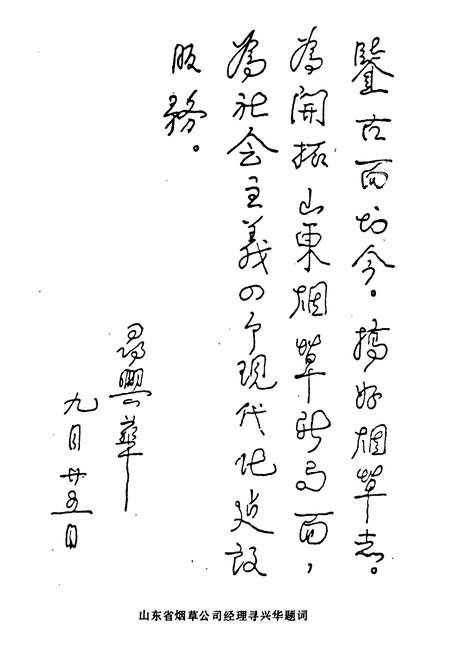 鑒古而切今。搞好烟草志。
為開拓山東烟草新局面，
為社会主義四个現代化建設
服務。
尋興華
九月廿五日
山东省烟草公司经理寻兴华题词